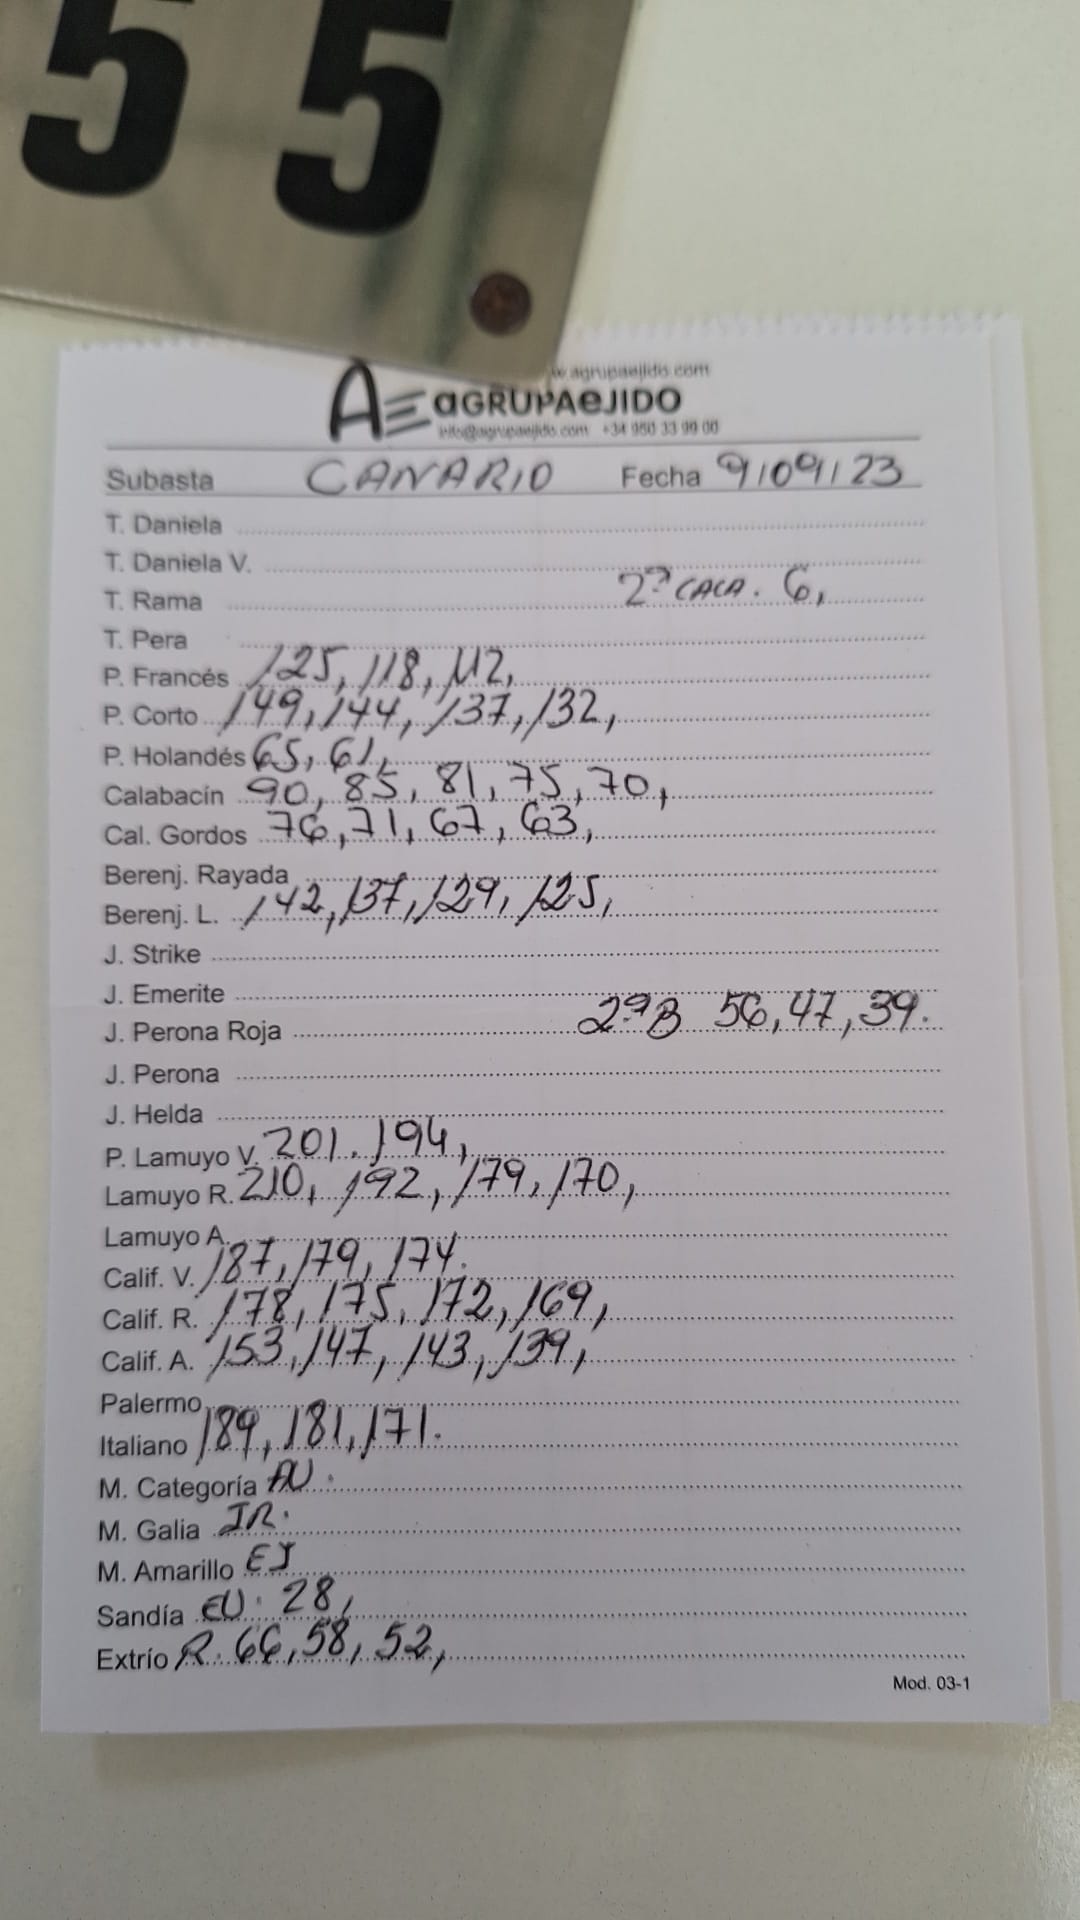 55
w.agrupaejido.com
AE aGRUPAeJIDO
info@agrupaejido.com +34 950 33 99 00
Subasta CANARIO Fecha 9/09/23
T. Daniela
T. Daniela V.
T. Rama 2ª CACA. 6,
T. Pera
P. Francés 125, 118, 112,
P. Corto 149, 144, 137, 132,
P. Holandés 65, 61,
Calabacín 90, 85, 81, 75, 70,
Cal. Gordos 76, 71, 67, 63,
Berenj. Rayada
Berenj. L. 142, 137, 129, 125,
J. Strike
J. Emerite
J. Perona Roja 2ªB 56, 47, 39.
J. Perona
J. Helda
P. Lamuyo V. 201. 194,
Lamuyo R. 210, 192, 179, 170,
Lamuyo A.
Calif. V. 187, 179, 174.
Calif. R. 178, 175, 172, 169,
Calif. A. 153, 147, 143, 139,
Palermo
Italiano 189, 181, 171.
M. Categoría AU.
M. Galia IR.
M. Amarillo EJ
Sandía EU. 28,
Extrío R. 66, 58, 52,
Mod. 03-1